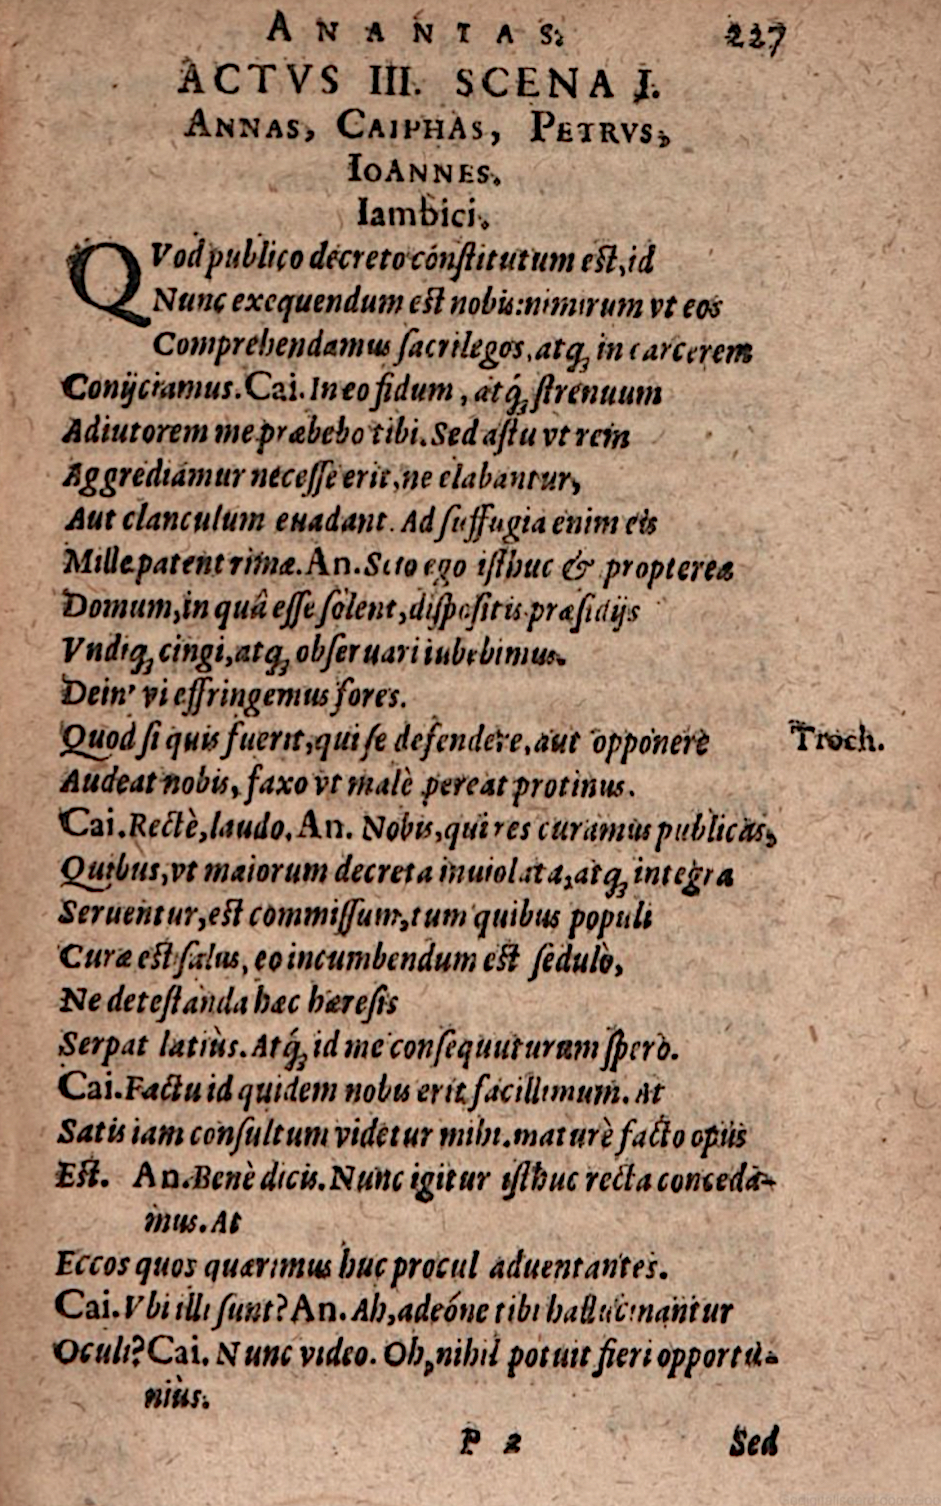 ANANTAS. 227
ACTVS III. SCENA I.
ANNAS, CAIPHAS, PETRVS,
IOANNES.
Iambici.
QVod publico decreto cónſtitutum eſt, id
Nunc exequendum eſt nobis: nimirum vt eos
Comprehendamus ſacrilegos, atq; in carcerem
Conijciamus. Cai. In eo fidum, atq́; ſtrenuum
Adiutorem me præbebo tibi. Sed aſtu vt rem
Aggrediamur neceſſe erit, ne elabantur,
Aut clanculum euadant. Ad ſuffugia enim eis
Mille patent rimæ. An. Scio ego iſthuc & propterea
Domum, in quâ eſſe ſolent, diſpoſitis præſidijs
Vndiq; cingi, atq; obſeruari iubebimus.
Dein' vi effringemus fores.
Quod ſi quis fuerit, qui ſe defendere, aut opponere Troch.
Audeat nobis, faxo vt malè pereat protinus.
Cai. Rectè, laudo. An. Nobis, qui res curamus publicas,
Quibus, vt maiorum decreta inuiolata, atq; integra
Seruentur, eſt commiſſum, tum quibus populi
Curæ eſt ſalus, eo incumbendum eſt ſedulò,
Ne deteſtanda hæc hæreſis
Serpat latiùs. Atq́; id me conſequuturum ſpero.
Cai. Factu id quidem nobis erit facillimum. At
Satis iam conſultum videtur mihi. maturè facto opus
Eſt. An. Benè dicis. Nunc igitur iſthuc recta conceda-
mus. At
Eccos quos quærimus huc procul aduentantes.
Cai. Vbi illi ſunt? An. Ah, adeóne tibi hallucinantur
Oculi? Cai. Nunc video. Oh, nihil potuit fieri opportu-
niùs.
P 2 Sed